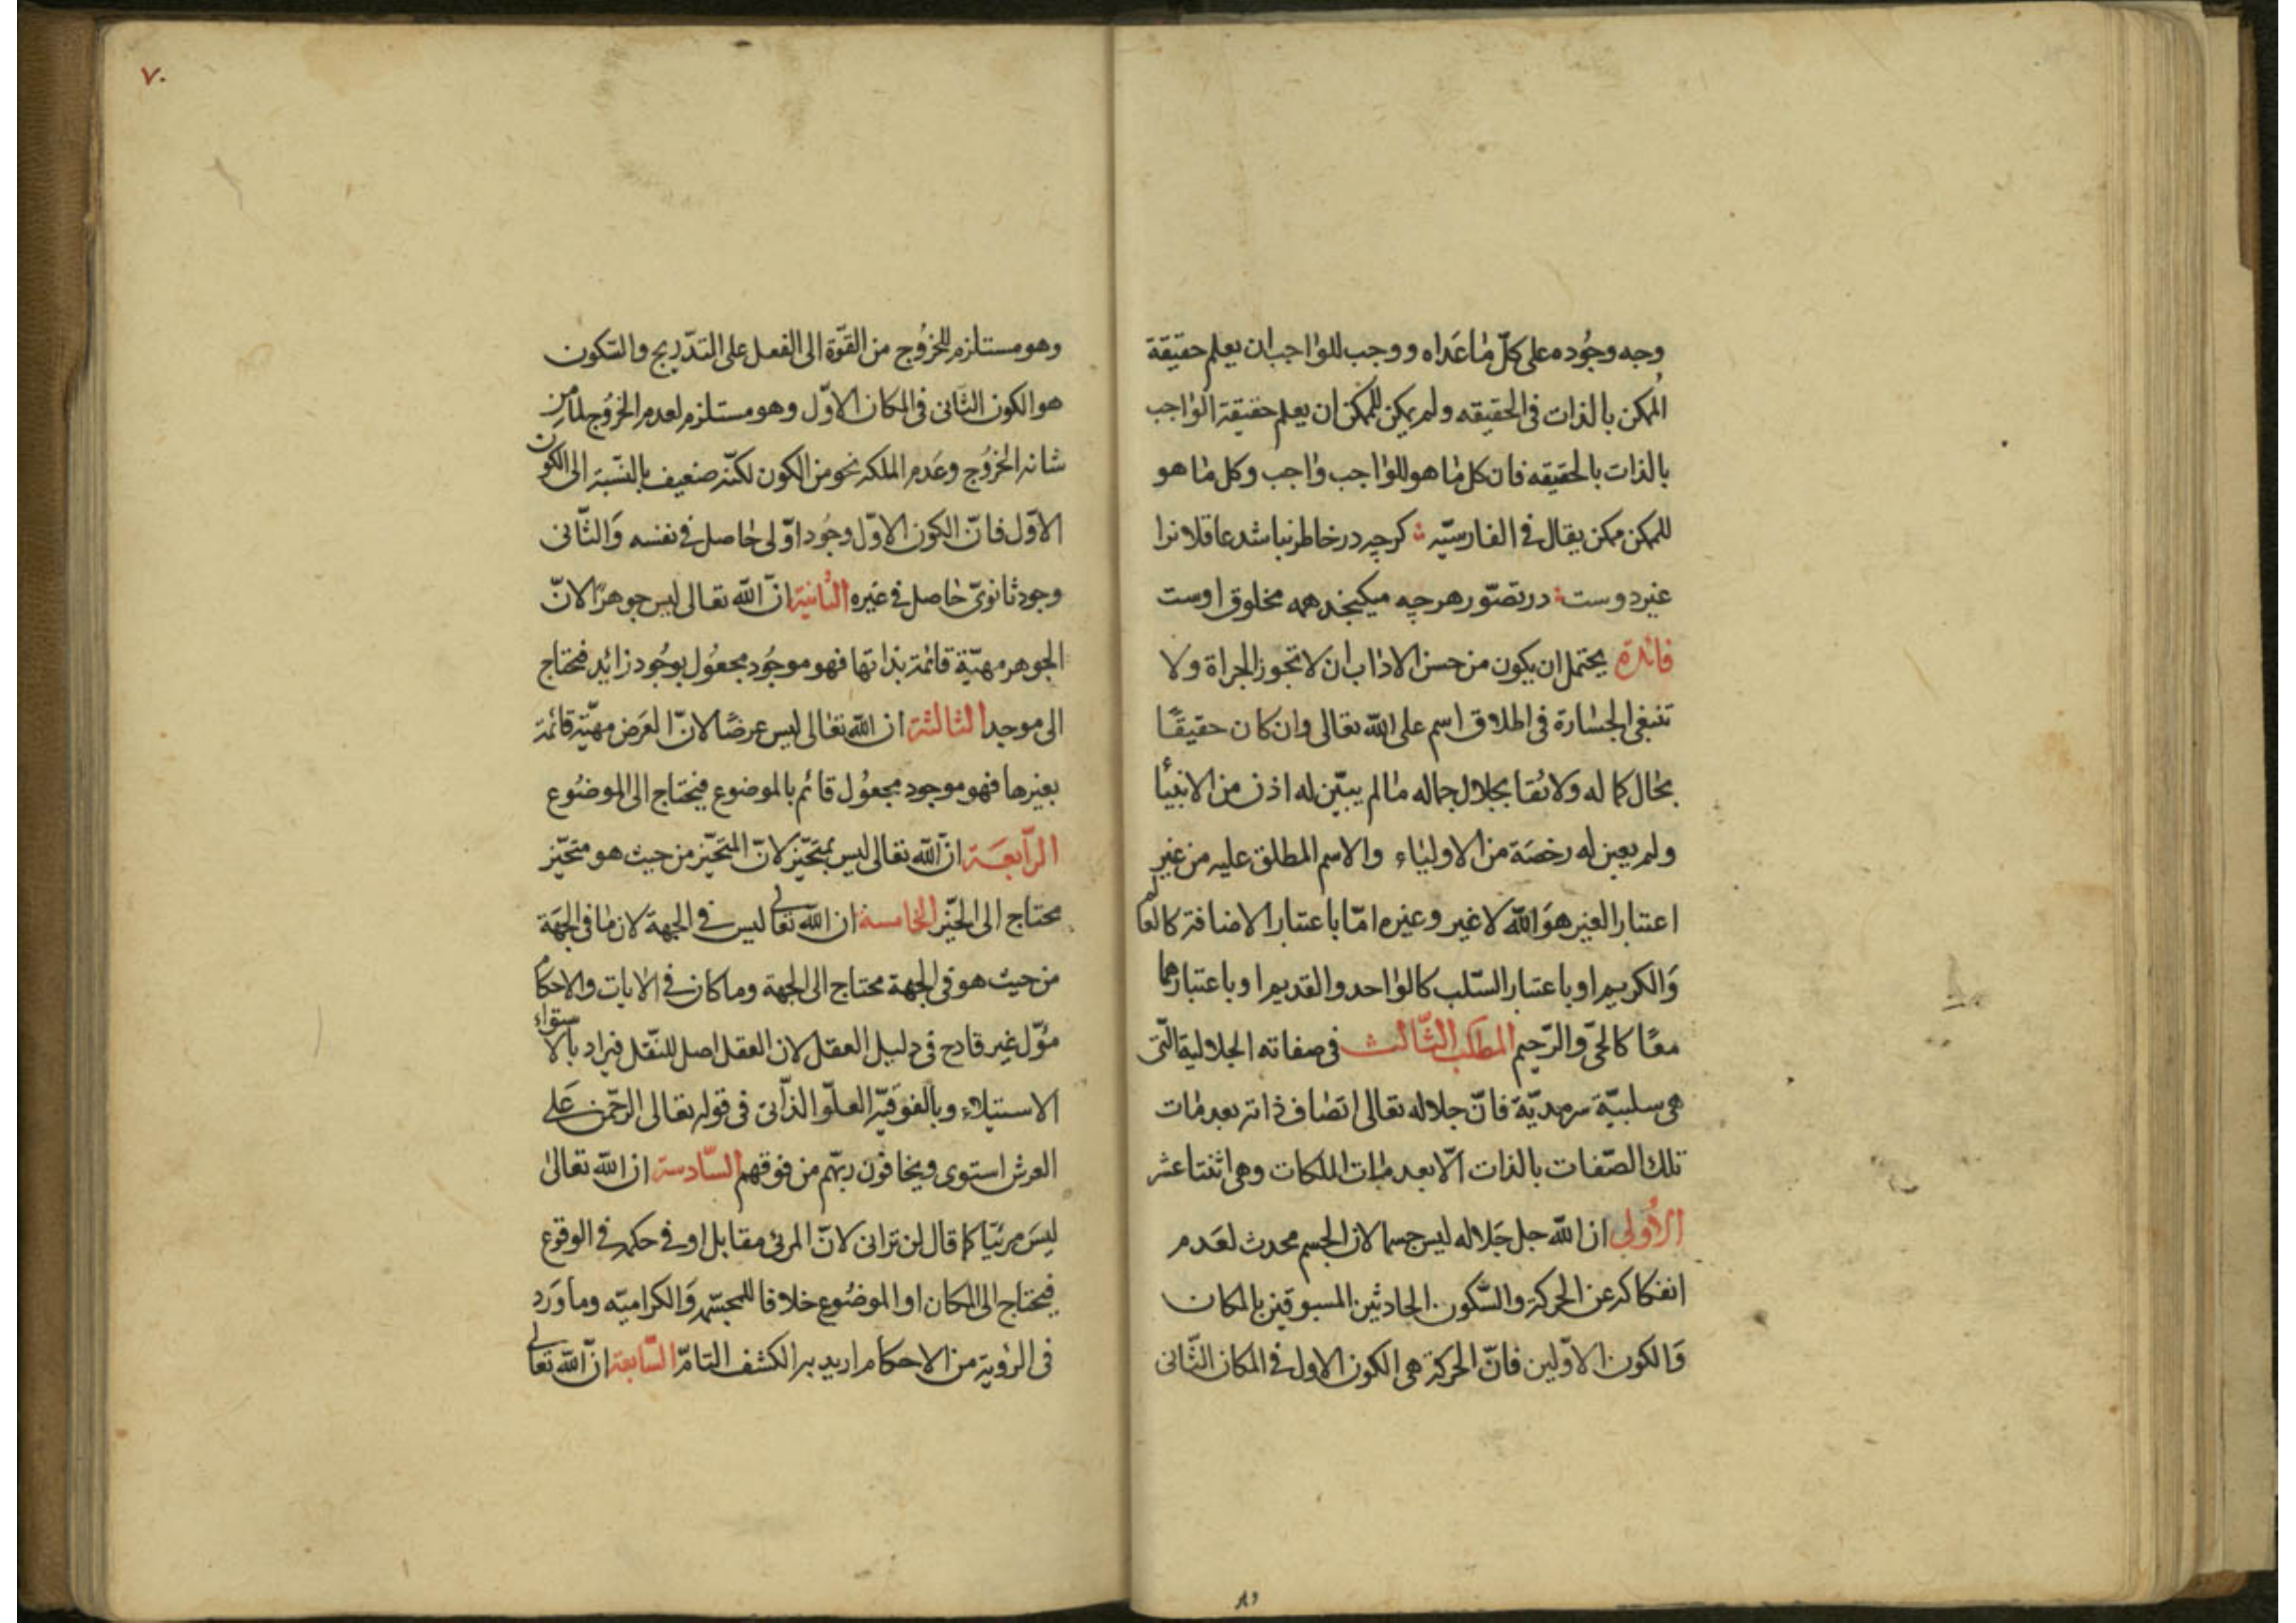 وجه وجُوده على كلّ ما عَداه ووجب للواجب ان يعلم حقيقة
المُمكن بالذات فى الحقيقه ولم يكن للمكن ان يعلم حقيقة الواجب
بالذات بالحقيقه فان كل ما هو للواجب واجب وكل ما هو
للمكن ممكن يقال فى الفارسيّه كرچه در خاطر نباشد عاقلانرا
غير دوست در تصوّر هرچه ميكنجد همه مخلوق اوست
فائدة يحتمل ان يكون من حسن الاداب ان لا تجوز الجراة ولا
تنبغى الجسارة فى اطلاق اسم على الله تعالى وان كان حقيقًا
بحال كماله ولائقا بجلال جماله ما لم يبيّن له اذن من الانبيأ
ولم يعين له رخصَة من الاولياء والاسم المطلق عليه من غير
اعتبار الغير هوَ الله لا غير وغيره امّا باعتبار الاضافة كالعالم
وَالكريم او باعتبار السّلب كالواحد والقديم او باعتبارهما
معًا كالحىّ والرّحيم المطلب الثّالث فى صفاته الجلالية الّتى
هى سلبيّة سرمديّة فانّ جلاله تعالى اتصاف ذاته بعدمات
تلك الصّفات بالذات الّا بعدمات الملكات وهى اثنتا عشر
الاُولى ان الله جل جَلاله ليس جسما لان الجسم محدث لعَدم
انفكاكه عن الحركة والسّكون الحادثين المسبوقين بالمكان
وَالكون الاوّلين فانّ الحركة هى الكون الاول فى المكان الثّانى
٧٠
وهو مستلزم للخرُوج من القوّة الى الفعل على التدّريج والسّكون
هو الكون الثّانى فى المكان الاوّل وهو مستلزم لعدم الخرُوج لما من
شانه الخرُوج وعَدم الملكه نحو من الكون لكنّه ضعيف بالنسّبة الى الكون
الاوّل فانّ الكون الاوّل وجُود اوّلى حاصل فى نفسه وَالثّانى
وجود ثانوىّ حاصل فى غيره الثّانية انّ الله تعالى ليس جوهرًا لانّ
الجوهر مهيّة قائمة بذاتها فهو موجُود مجعُول بوجُود زائد فيحتاج
الى موجد الثالثة ان الله تعالى ليس عرضًا لانّ العَرض مهيّة قائمة
بغيرها فهو موجود مجعُول قائم بالموضوع فيحتاج الى الموضُوع
الرّابعَة انّ الله تعالى ليس بمتَحيّز لانّ المتَحيّز من حيث هو متحيّز
محتاج الى الحيّز الخامسة ان الله تعالى ليس فى الجهة لان ما فى الجهَة
من حيث هو فى الجهة محتاج الى الجهة وما كان فى الايات والاحكام
مؤوّل غير قادح فى دليل العقل لان العقل اصل للنقّل فيراد بالاستواء
الاستيلاء وبالفوَقيّة العلوّ الذّاتى فى قوله تعالى الرحّمن عَلى
العرش استوى ويخافون ربّهم من فوقهم السّادسة ان الله تعالىٰ
ليسَ مرئيّا كما قال لن ترانى لانّ المرئى مقابل او فى حكمه فى الوقوع
فيحتاج الى المكان او الموضُوع خلافا للمجسّمه وَالكراميّه وما وَرد
فى الرؤية من الاحكام اريد به الكشف التامّ السّابعة انّ الله تعالى